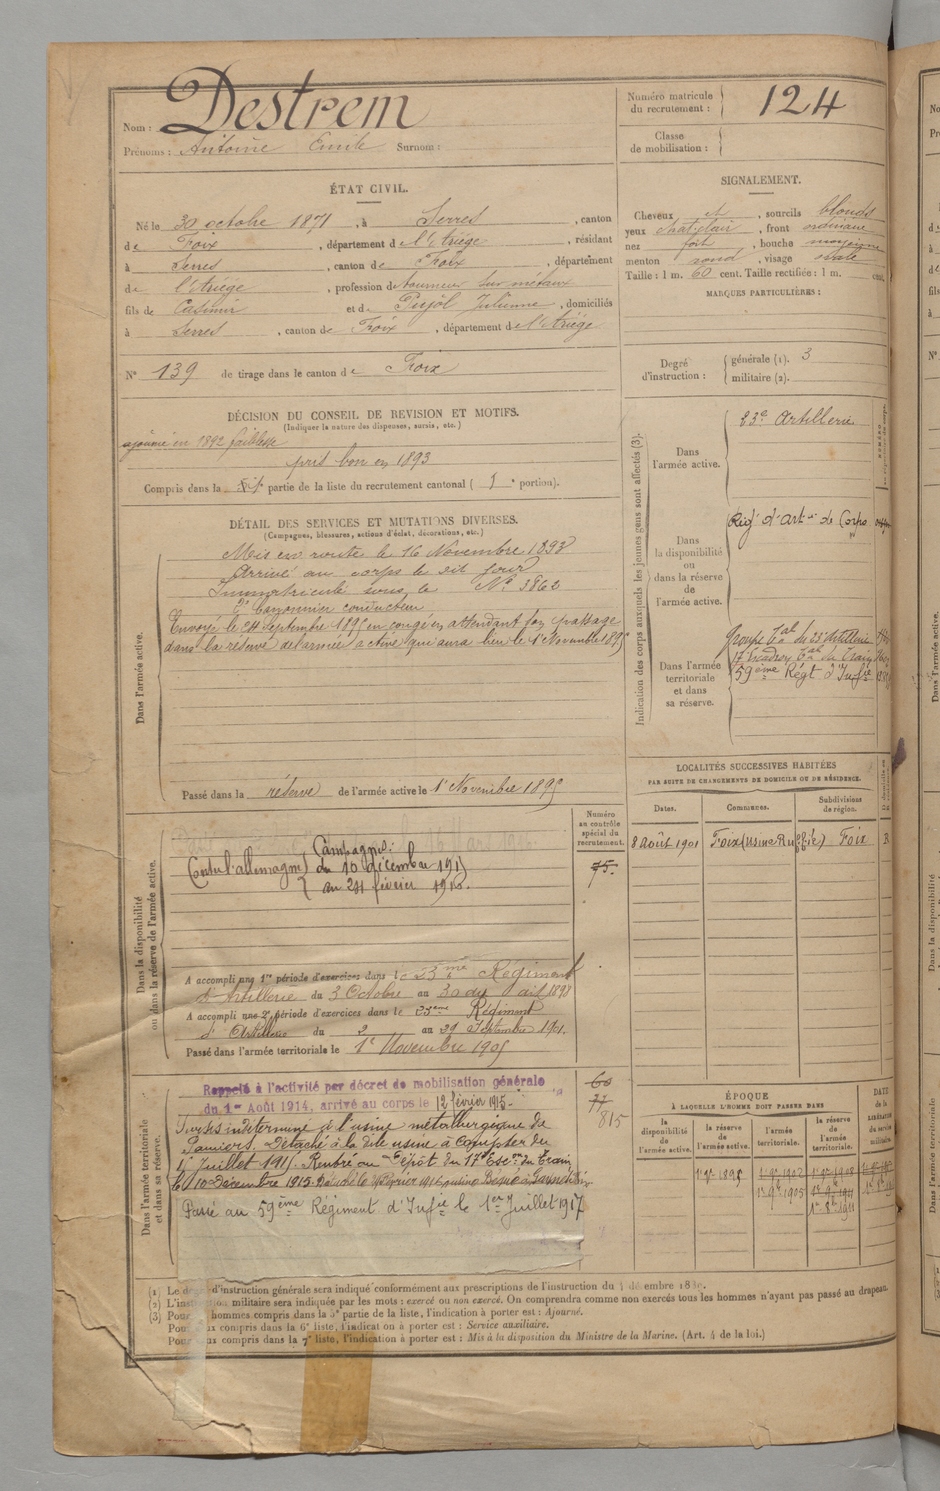 Nom : Destrem
Prénoms : Antoine Emile Surnom :
Numéro matricule du recrutement : 124
Classe de mobilisation :
ÉTAT CIVIL.
Né le 30 octobre 1871, à Serres, canton
de Foix, département de l'Ariége, résidant
à Serres, canton de Foix, département
de l'Ariége, profession de tourneur sur métaux
fils de Casimir et de Pujol Julienne, domiciliés
à Serres, canton de Foix, département de l'Ariége
N° 139 de tirage dans le canton de Foix
SIGNALEMENT.
Cheveux et, sourcils blonds
yeux chat. clair, front ordinaire
nez fort, bouche moyenne
menton rond, visage ovale
Taille : 1 m. 60 cent. Taille rectifiée : 1 m. cent.
MARQUES PARTICULIÈRES :
Degré d'instruction : générale (1). 3
militaire (2).
DÉCISION DU CONSEIL DE REVISION ET MOTIFS.
(Indiquer la nature des dispenses, sursis, etc.)
ajourné en 1892 faiblesse
pris bon en 1893
Compris dans la partie de la liste du recrutement cantonal ( portion).
DÉTAIL DES SERVICES ET MUTATIONS DIVERSES.
(Campagnes, blessures, actions d'éclat, décorations, etc.)
Dans l'armée active.
Mis en route le 16 Novembre 1893
Arrivé au corps le dit jour
Immatriculé sous le N° 3862
2e canonnier conducteur
Envoyé le 24 Septembre 1895 en congé en attendant son passage
dans la réserve de l'armée active qui aura lieu le 1er Novembre 1895
Passé dans la réserve de l'armée active le 1er Novembre 1895
Indication des corps auxquels les jeunes gens sont affectés (3).
Dans l'armée active.
23e Artillerie
Dans la disponibilité ou dans la réserve de l'armée active.
Régt d'Artie de Corps
Dans l'armée territoriale et dans sa réserve.
Groupe Tal du 23 Artillerie
17 Escadron Tal du Train
59ème Régt d'Infie
LOCALITÉS SUCCESSIVES HABITÉES
PAR SUITE DE CHANGEMENTS DE DOMICILE OU DE RÉSIDENCE.
Dates. Communes. Subdivisions de région.
8 Août 1901 Foix (usine Ruffié) Foix R
Dans la disponibilité ou dans la réserve de l'armée active.
Numéro au contrôle spécial du recrutement.
75.
Campagnes :
Contre l'allemagne du 10 décembre 1915
au 24 février 1916.
A accompli une 1re période d'exercices dans le 23me Régiment
d'Artillerie du 3 Octobre au 30 du dit 1898
A accompli une 2e période d'exercices dans le 23eme Régiment
d'Artillerie du 2 au 29 Septembre 1901.
Passé dans l'armée territoriale le 1er Novembre 1905
Dans l'armée territoriale et dans sa réserve.
60
77
815
Rappelé à l'activité par décret de mobilisation générale
du 1er Août 1914, arrivé au corps le 12 février 1915.
Sursis indéterminé à l'usine métallurgique de
Pamiers. Détaché à la dite usine à compter du
1er juillet 1915. Rentré au Dépôt du 17e Escon du Train
le 10 Décembre 1915. Détaché le février 1916 usine
Passé au 59ème Régiment d'Infie le 1er Juillet 1917
ÉPOQUE
À LAQUELLE L'HOMME DOIT PASSER DANS
la disponibilité de l'armée active. la réserve de l'armée active. l'armée territoriale. la réserve de l'armée territoriale. DATE de la LIBÉRATION du service militaire.
1er 9bre 1895 1er 9bre 1902 1er 9bre 1908
1er 9bre 1905 1er 9bre 1911
(1) Le degré d'instruction générale sera indiqué conformément aux prescriptions de l'instruction du décembre
(2) L'instruction militaire sera indiquée par les mots : exercé ou non exercé. On comprendra comme non exercés tous les hommes n'ayant pas passé au drapeau.
(3) Pour hommes compris dans la 5e partie de la liste, l'indication à porter est : Ajourné.
Pour ceux compris dans la 6e liste, l'indication à porter est : Service auxiliaire.
Pour ceux compris dans la 7e liste, l'indication à porter est : Mis à la disposition du Ministre de la Marine. (Art. 4 de la loi.)